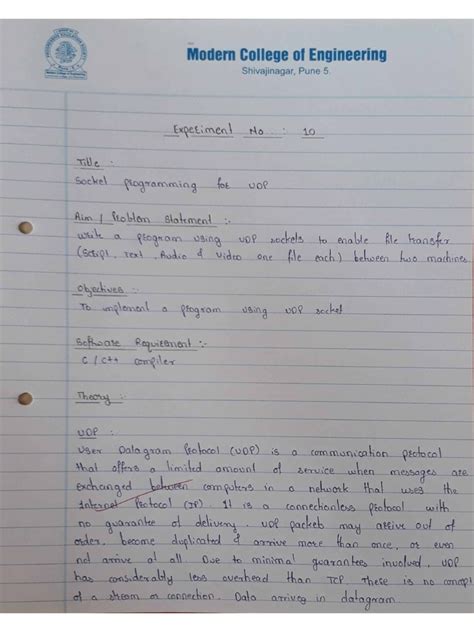 Modern College of Engineering
Shivajinagar, Pune 5.
Experiment No. : 10
Title :
Socket programming for UDP
Aim / Problem Statement :-
Write a program using UDP sockets to enable file transfer
(Script, Text, Audio & Video one file each) between two machines
Objectives :-
To implement a program using UDP socket
Software Requirement :-
C / C++ compiler
Theory :-
UDP :-
User Datagram Protocol (UDP) is a communication protocol
that offers a limited amount of service when messages are
exchanged between computers in a network that uses the
Internet Protocol (IP). It is a connectionless protocol with
no guarantee of delivery. UDP packets may arrive out of
order, become duplicated & arrive more than once, or even
not arrive at all. Due to minimal guarantees involved, UDP
has considerably less overhead than TCP. There is no concept
of a stream or connection. Data arrives in datagram.